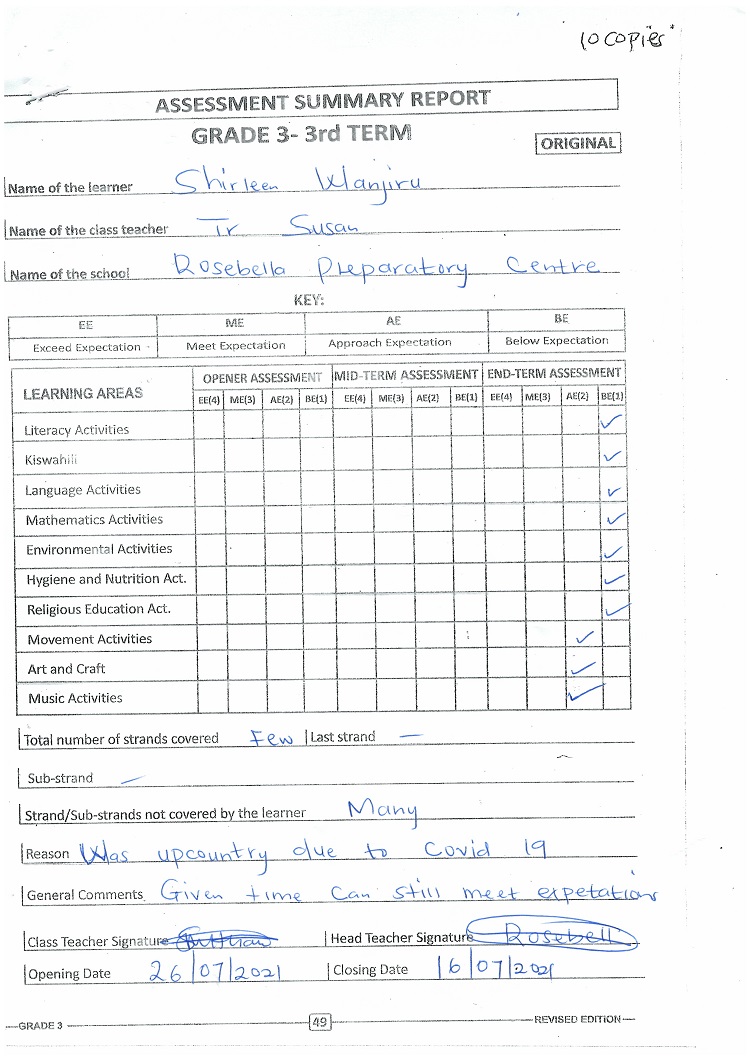 10 copies
ASSESSMENT SUMMARY REPORT
GRADE 3- 3rd TERM
ORIGINAL
Name of the learner Shirleen Wanjiru
Name of the class teacher Tr Susan
Name of the school Rosebella Preparatory Centre
KEY:
EE ME AE BE
Exceed Expectation Meet Expectation Approach Expectation Below Expectation
LEARNING AREAS OPENER ASSESSMENT MID-TERM ASSESSMENT END-TERM ASSESSMENT
EE(4) ME(3) AE(2) BE(1) EE(4) ME(3) AE(2) BE(1) EE(4) ME(3) AE(2) BE(1)
Literacy Activities ✓
Kiswahili ✓
Language Activities ✓
Mathematics Activities ✓
Environmental Activities ✓
Hygiene and Nutrition Act. ✓
Religious Education Act. ✓
Movement Activities ✓
Art and Craft ✓
Music Activities ✓
Total number of strands covered Few Last strand —
Sub-strand —
Strand/Sub-strands not covered by the learner Many
Reason Was upcountry due to Covid 19
General Comments Given time can still meet expetations
Class Teacher Signature Head Teacher Signature Rosebell
Opening Date 26/07/2021 Closing Date 16/07/2021
GRADE 3 49 REVISED EDITION